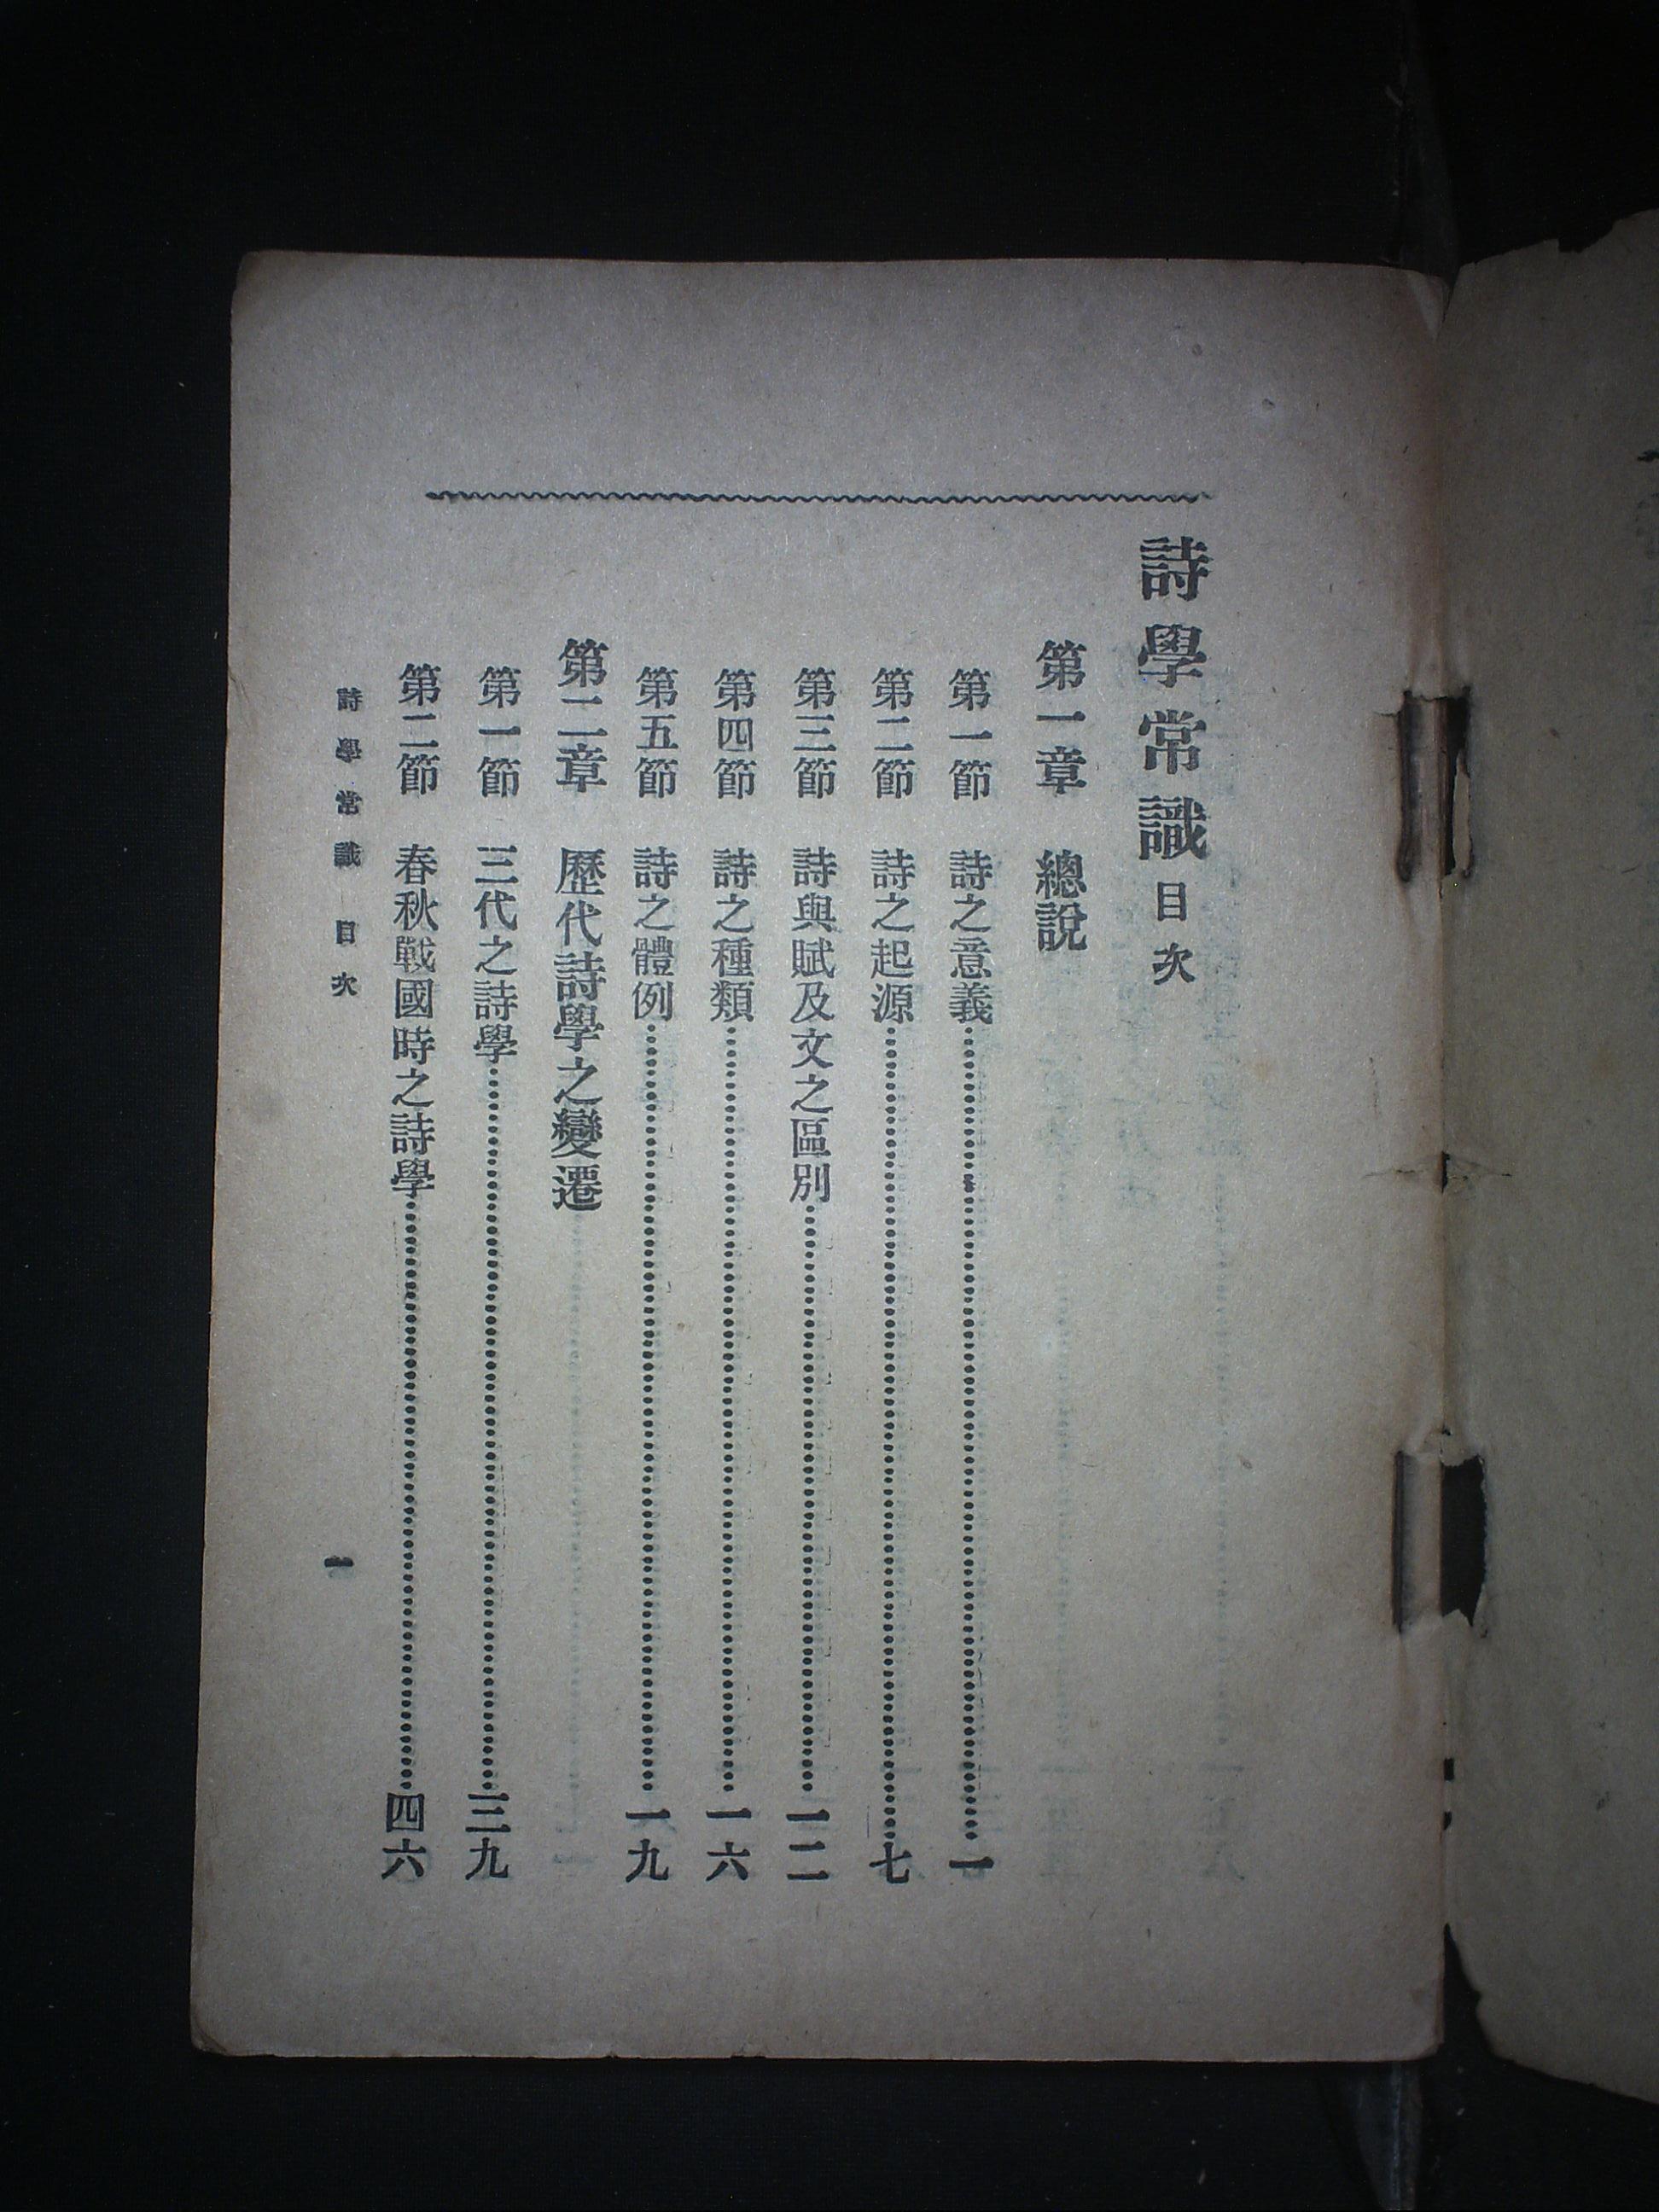 詩學常識目次
第一章 總說
第一節 詩之意義……一
第二節 詩之起源……七
第三節 詩與賦及文之區別……一二
第四節 詩之種類……一六
第五節 詩之體例……一九
第二章 歷代詩學之變遷
第一節 三代之詩學……三九
第二節 春秋戰國時之詩學……四六
詩學常識 目次 一